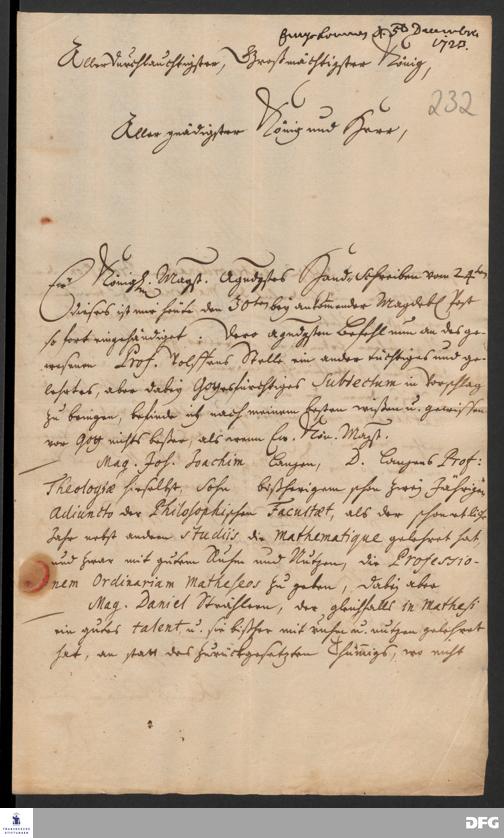 Eingekommen d. 5t Decembr.
1723.
Allerdurchlauchtigster, Großmächtigster König,
232
Allergnädigster König und Herr,
Ew. Königl. Mayst. Agndstes Hand-Schreiben vom 24ten
dieses ist mir heute den 30ten bey ankommender Magdeb. Post
so fort eingehändiget: Dero agndsten Befehl nun an des ge-
wesenen Prof. Wolffens Stelle ein ander tüchtiges und ge-
lehrtes, aber dabey Gottesfürchtiges Subiectum in Vorschlag
zu bringen, befinde ich nach meinem besten wissen u. gewissen
vor Gott nichts besser, als wenn Ew. Kön. Mayst.
Mag. Joh. Joachim Langen, D. Langens Prof:
Theologiæ hieselbst, Sohn bißherigem schon zwey Jährigen
Adiuncto der Philosophischen Facultæt, als der schon etliche
Jahr nebst andern Studiis die Mathematique gelehret hat,
und zwar mit gutem Ruhm und Nutzen, die Professio-
nem Ordinariam Matheseos zu geben, dabey aber
Mag. Daniel Strählern, der gleichfalls in Mathesi
ein gutes talent u. sie bißher mit ruhm u. nutzen gelehret
hat, an statt des zurückgesetzten Thümmigs, wo nicht
FRANCKESCHE
STIFTUNGEN
DFG